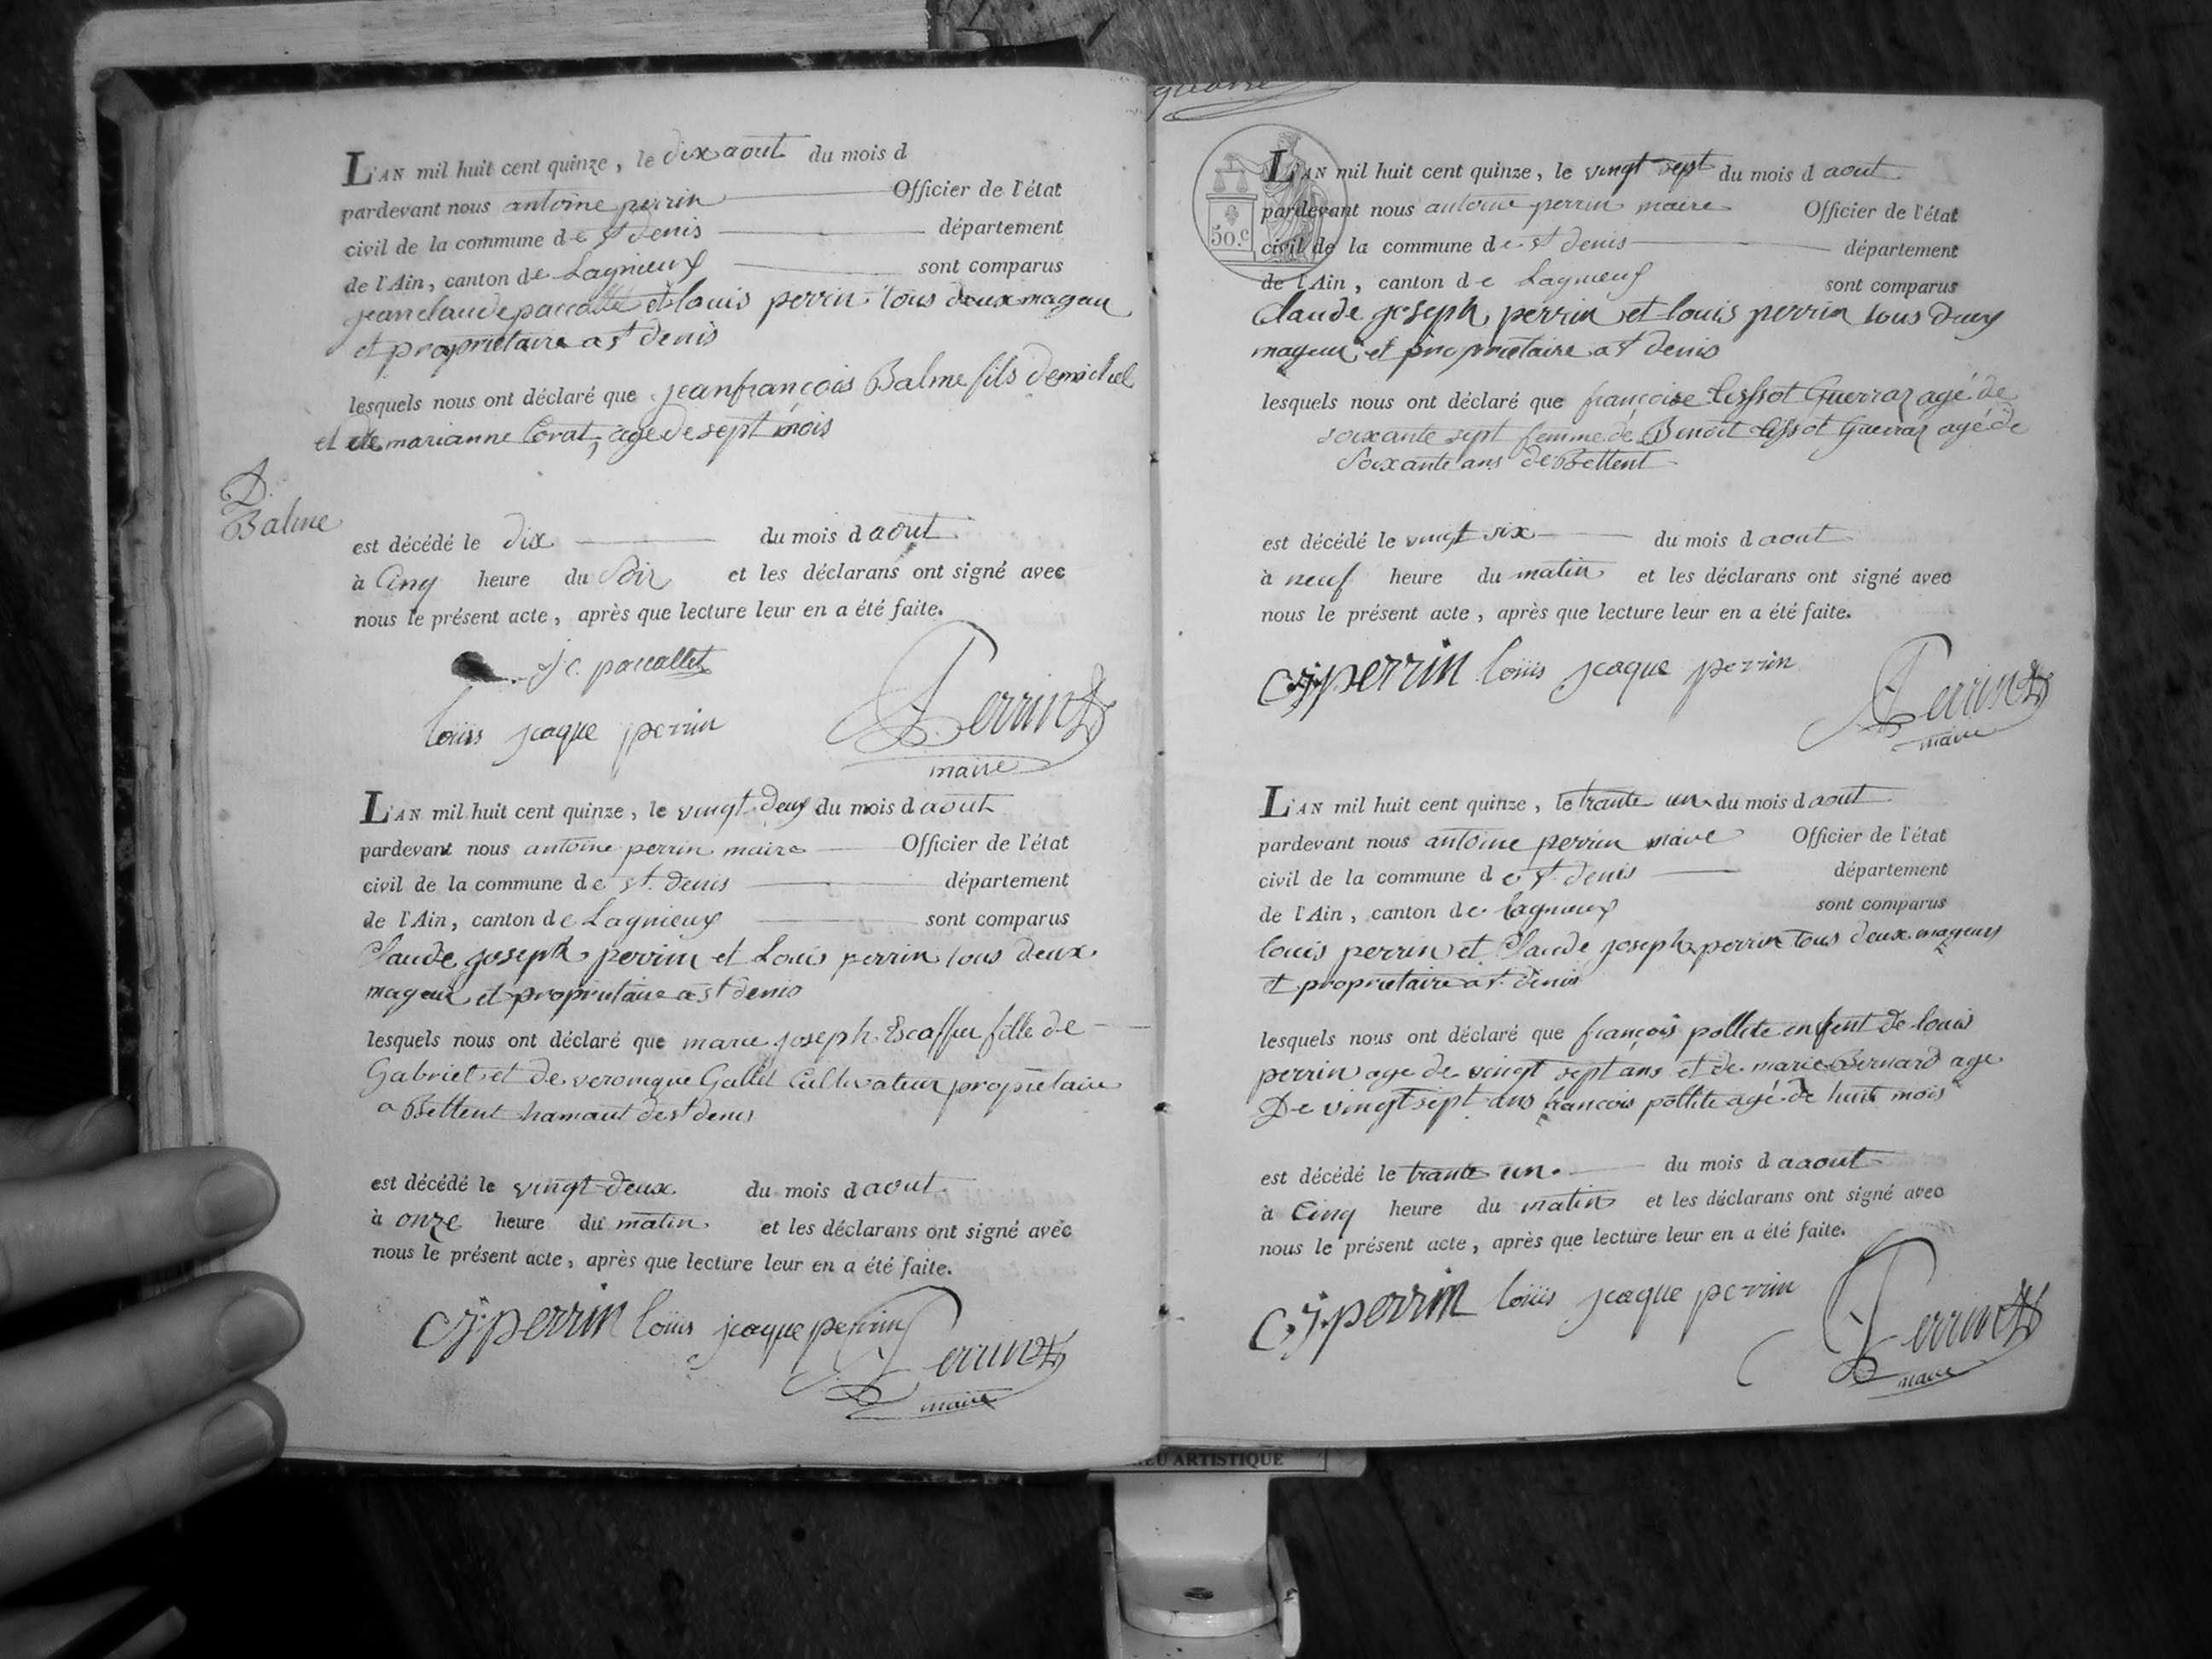 L'AN mil huit cent quinze, le dix aout du mois d
pardevant nous antoine perrin Officier de l'état
civil de la commune de st denis département
de l'Ain, canton de Lagnieux sont comparus
jean claude paccallet et louis perrin tous deux mageur
et propriétaire a st denis
lesquels nous ont déclaré que jean françois Balme fils de michel
et de marianne Corat, agé de sept mois
D.
Balme
est décédé le dix du mois d aout
à Cinq heure du Soir et les déclarans ont signé avec
nous le présent acte, après que lecture leur en a été faite.
J C. paccallet
louis jcaque perrin
Perrin
maire
L'AN mil huit cent quinze, le vingt-deux du mois d aout
pardevant nous antoine perrin maire Officier de l'état
civil de la commune de st. denis département
de l'Ain, canton de Lagnieux sont comparus
Claude joseph perrin et Louis perrin tous deux
mageur et propriétaire a st denis
lesquels nous ont déclaré que marie joseph Escaffier fille de
Gabriel et de veronique Gallet Cultivateur propriétaire
a Bettent hamaut de st denis
est décédé le vingt-deux du mois d aout
à onze heure du matin et les déclarans ont signé avec
nous le présent acte, après que lecture leur en a été faite.
cjperrin louis jcaque perrin
Perrin
maire
50.c
L'AN mil huit cent quinze, le vingt sept du mois d aout
pardevant nous antoine perrin maire Officier de l'état
civil de la commune de st denis département
de l'Ain, canton de Lagnieux sont comparus
Claude joseph perrin et louis perrin tous deux
mageur et propriétaire a st denis
lesquels nous ont déclaré que françoise Guerraz agé de
soixante sept femme de Benoit Guerraz agé de
Soixante ans de Bettent
est décédé le vingt six du mois d aout
à neuf heure du matin et les déclarans ont signé avec
nous le présent acte, après que lecture leur en a été faite.
cjperrin louis jcaque perrin
Perrin
maire
L'AN mil huit cent quinze, le trante un du mois d aout
pardevant nous antoine perrin maire Officier de l'état
civil de la commune de st denis département
de l'Ain, canton de lagnieux sont comparus
louis perrin et Claude joseph perrin tous deux mageur
et propriétaire a st. denis
lesquels nous ont déclaré que françois pollite enfent de louis
perrin age de vingt sept ans et de marie Bernard age
De vingt sept ans francois pollite agé de huit mois
est décédé le trante un. du mois d aaout
à Cinq heure du matin et les déclarans ont signé avec
nous le présent acte, après que lecture leur en a été faite.
cj.perrin louis jcaque perrin
Perrin
maire
EU ARTISTIQUE